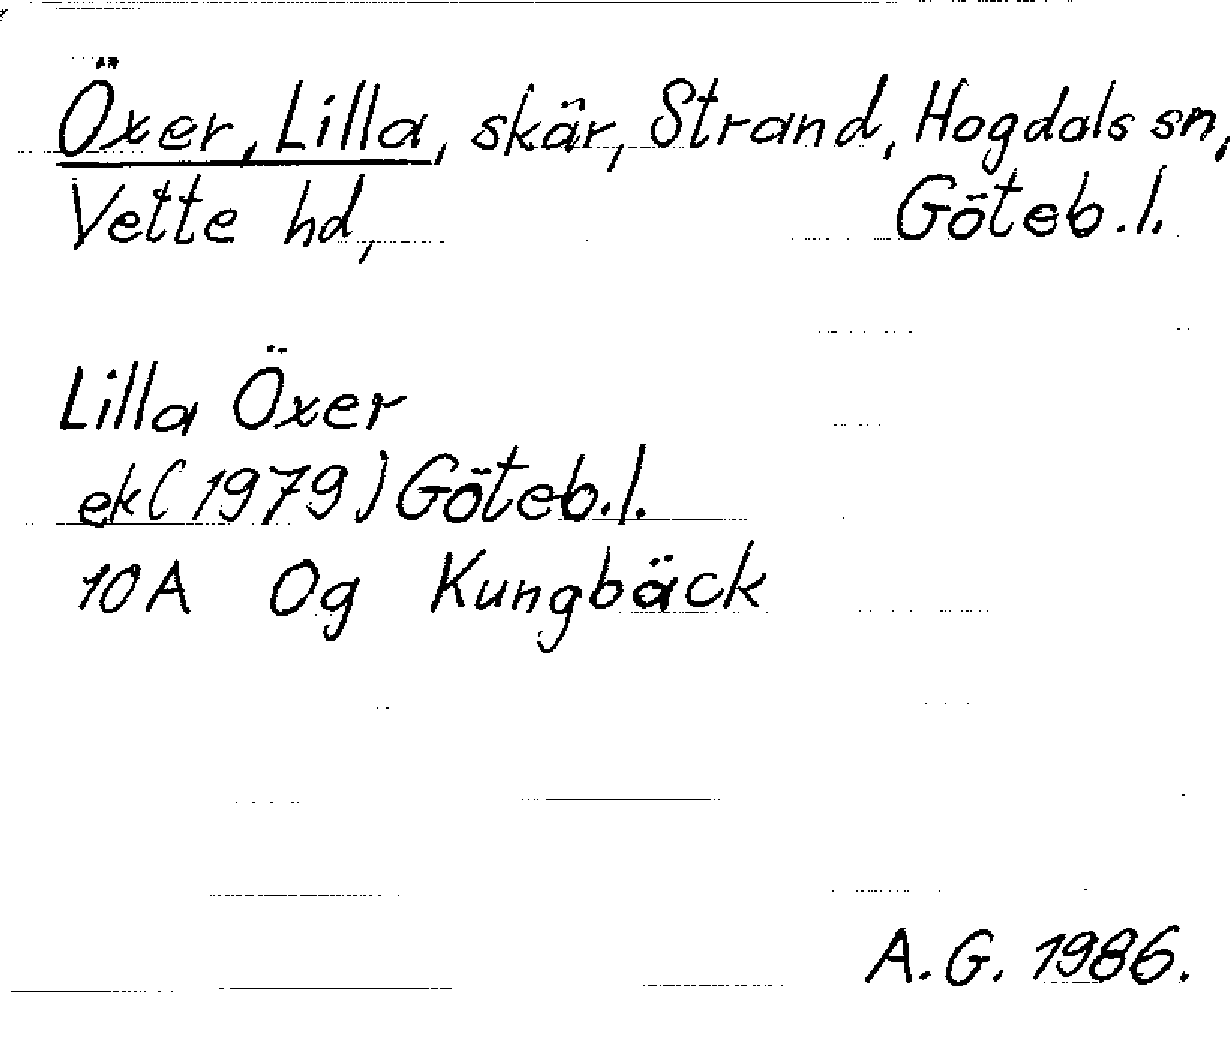 Öxer, Lilla, skär, Strand, Hogdals sn,
Vette hd, Göteb.l.
Lilla Öxer
ek(1979)Göteb.l.
10A Og Kungbäck
A.G. 1986.